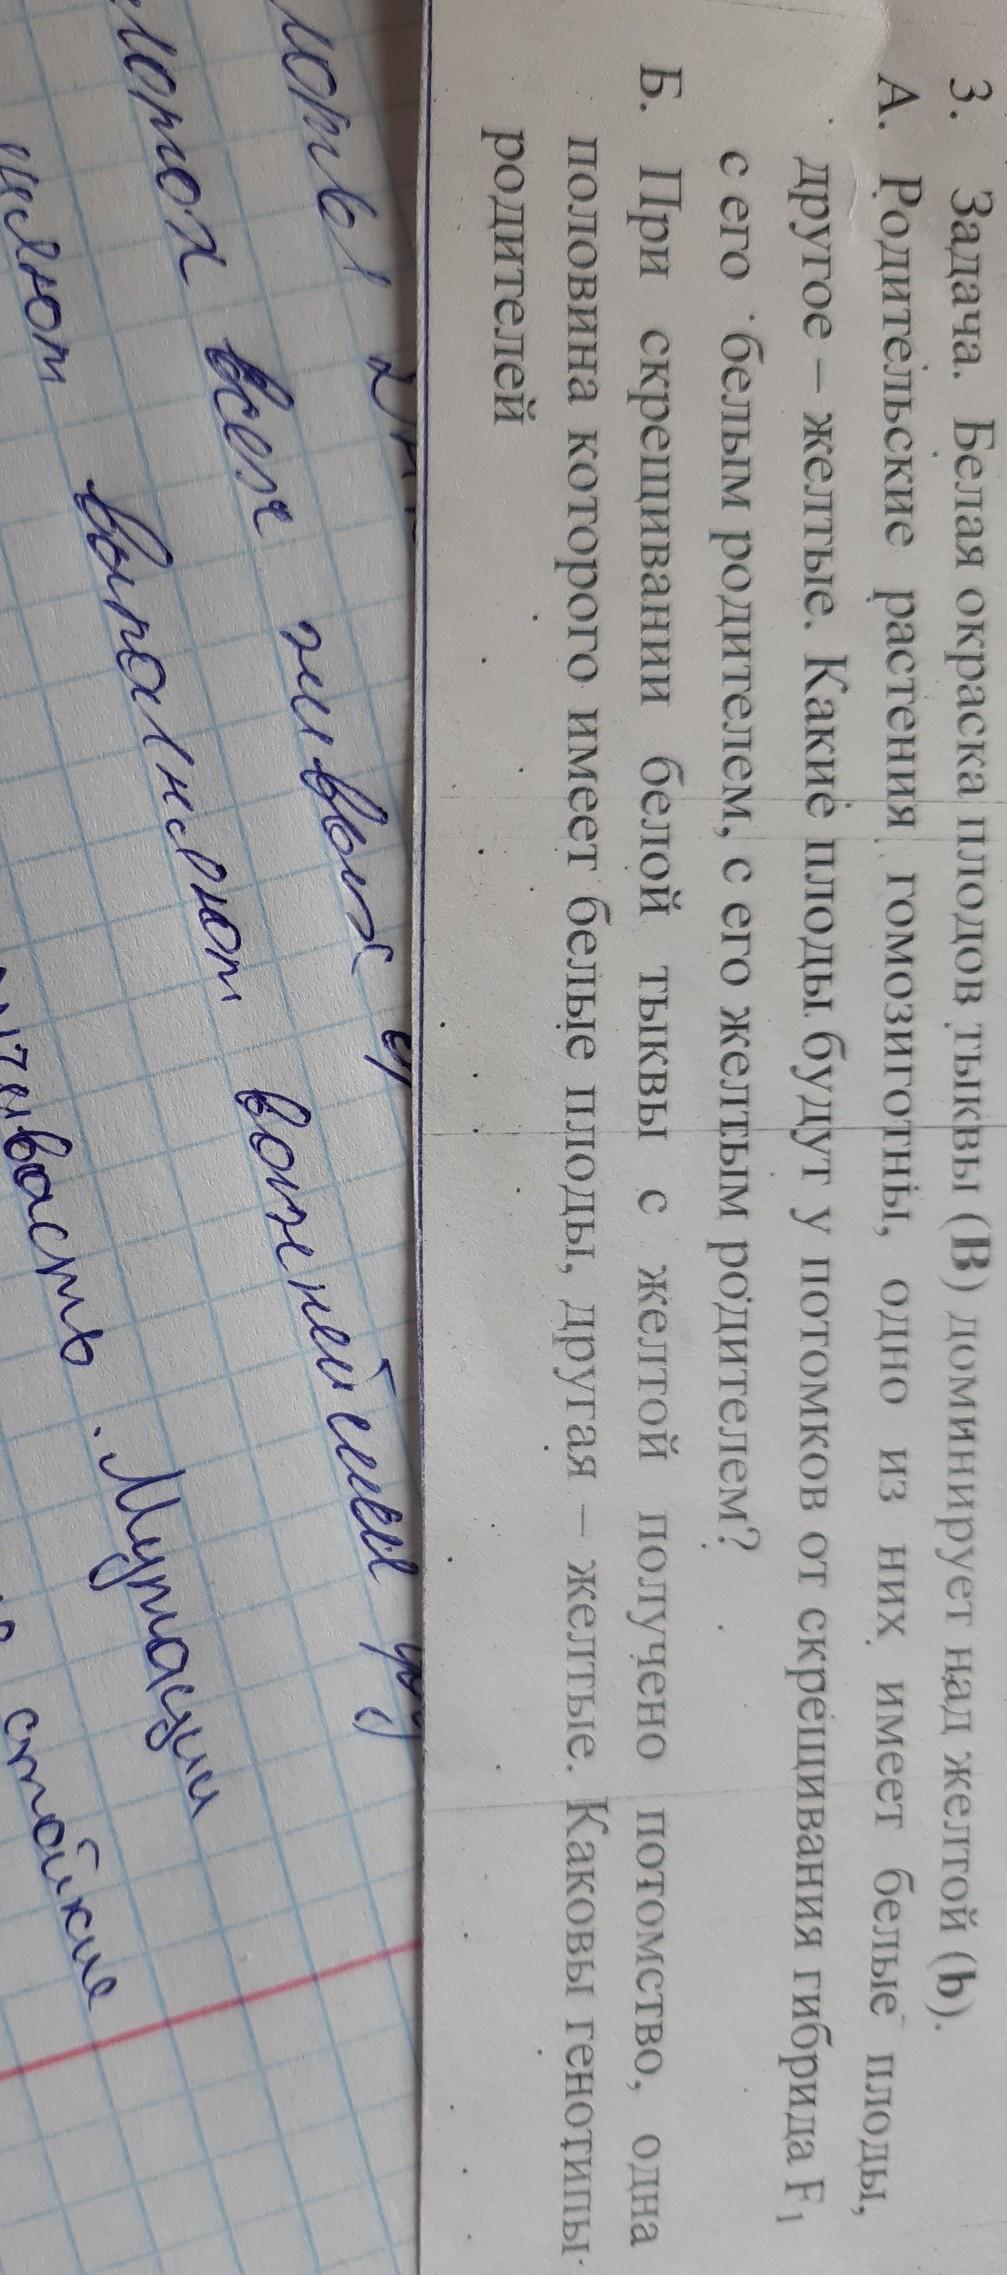 3. Задача. Белая окраска плодов тыквы (В) доминирует над желтой (b).
А. Родительские растения гомозиготны, одно из них имеет белые плоды,
другое – желтые. Какие плоды будут у потомков от скрещивания гибрида F₁
с его белым родителем, с его желтым родителем?
Б. При скрещивании белой тыквы с желтой получено потомство, одна
половина которого имеет белые плоды, другая – желтые. Каковы генотипы
родителей
всех живых
выполняют важнейшая
. Мутации
стойкие